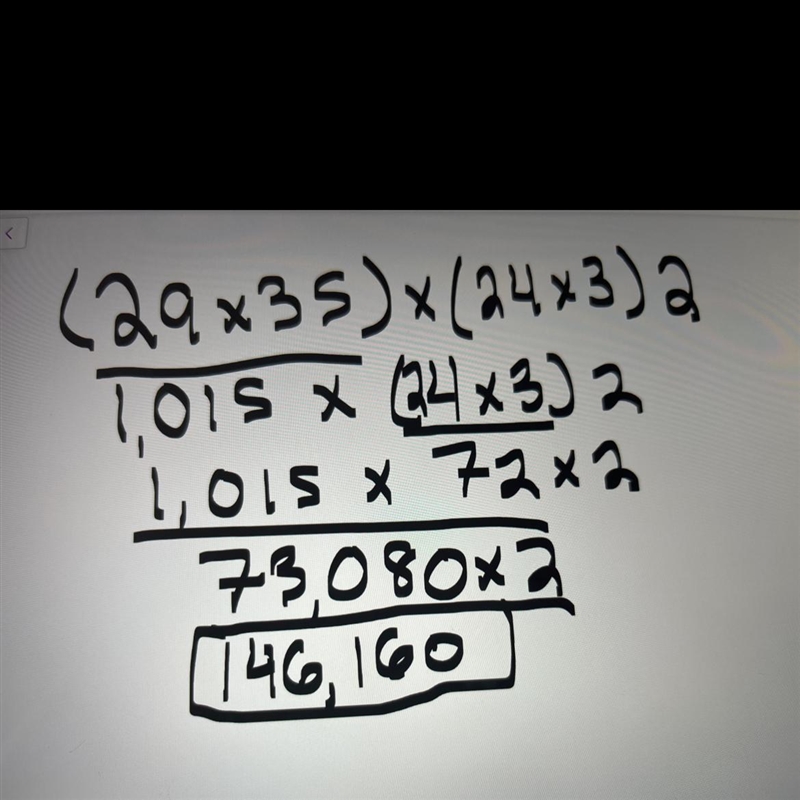 (29 x 35) x (24 x 3) 2
1,015 x (24 x 3) 2
1,015 x 72 x 2
73,080 x 2
146,160